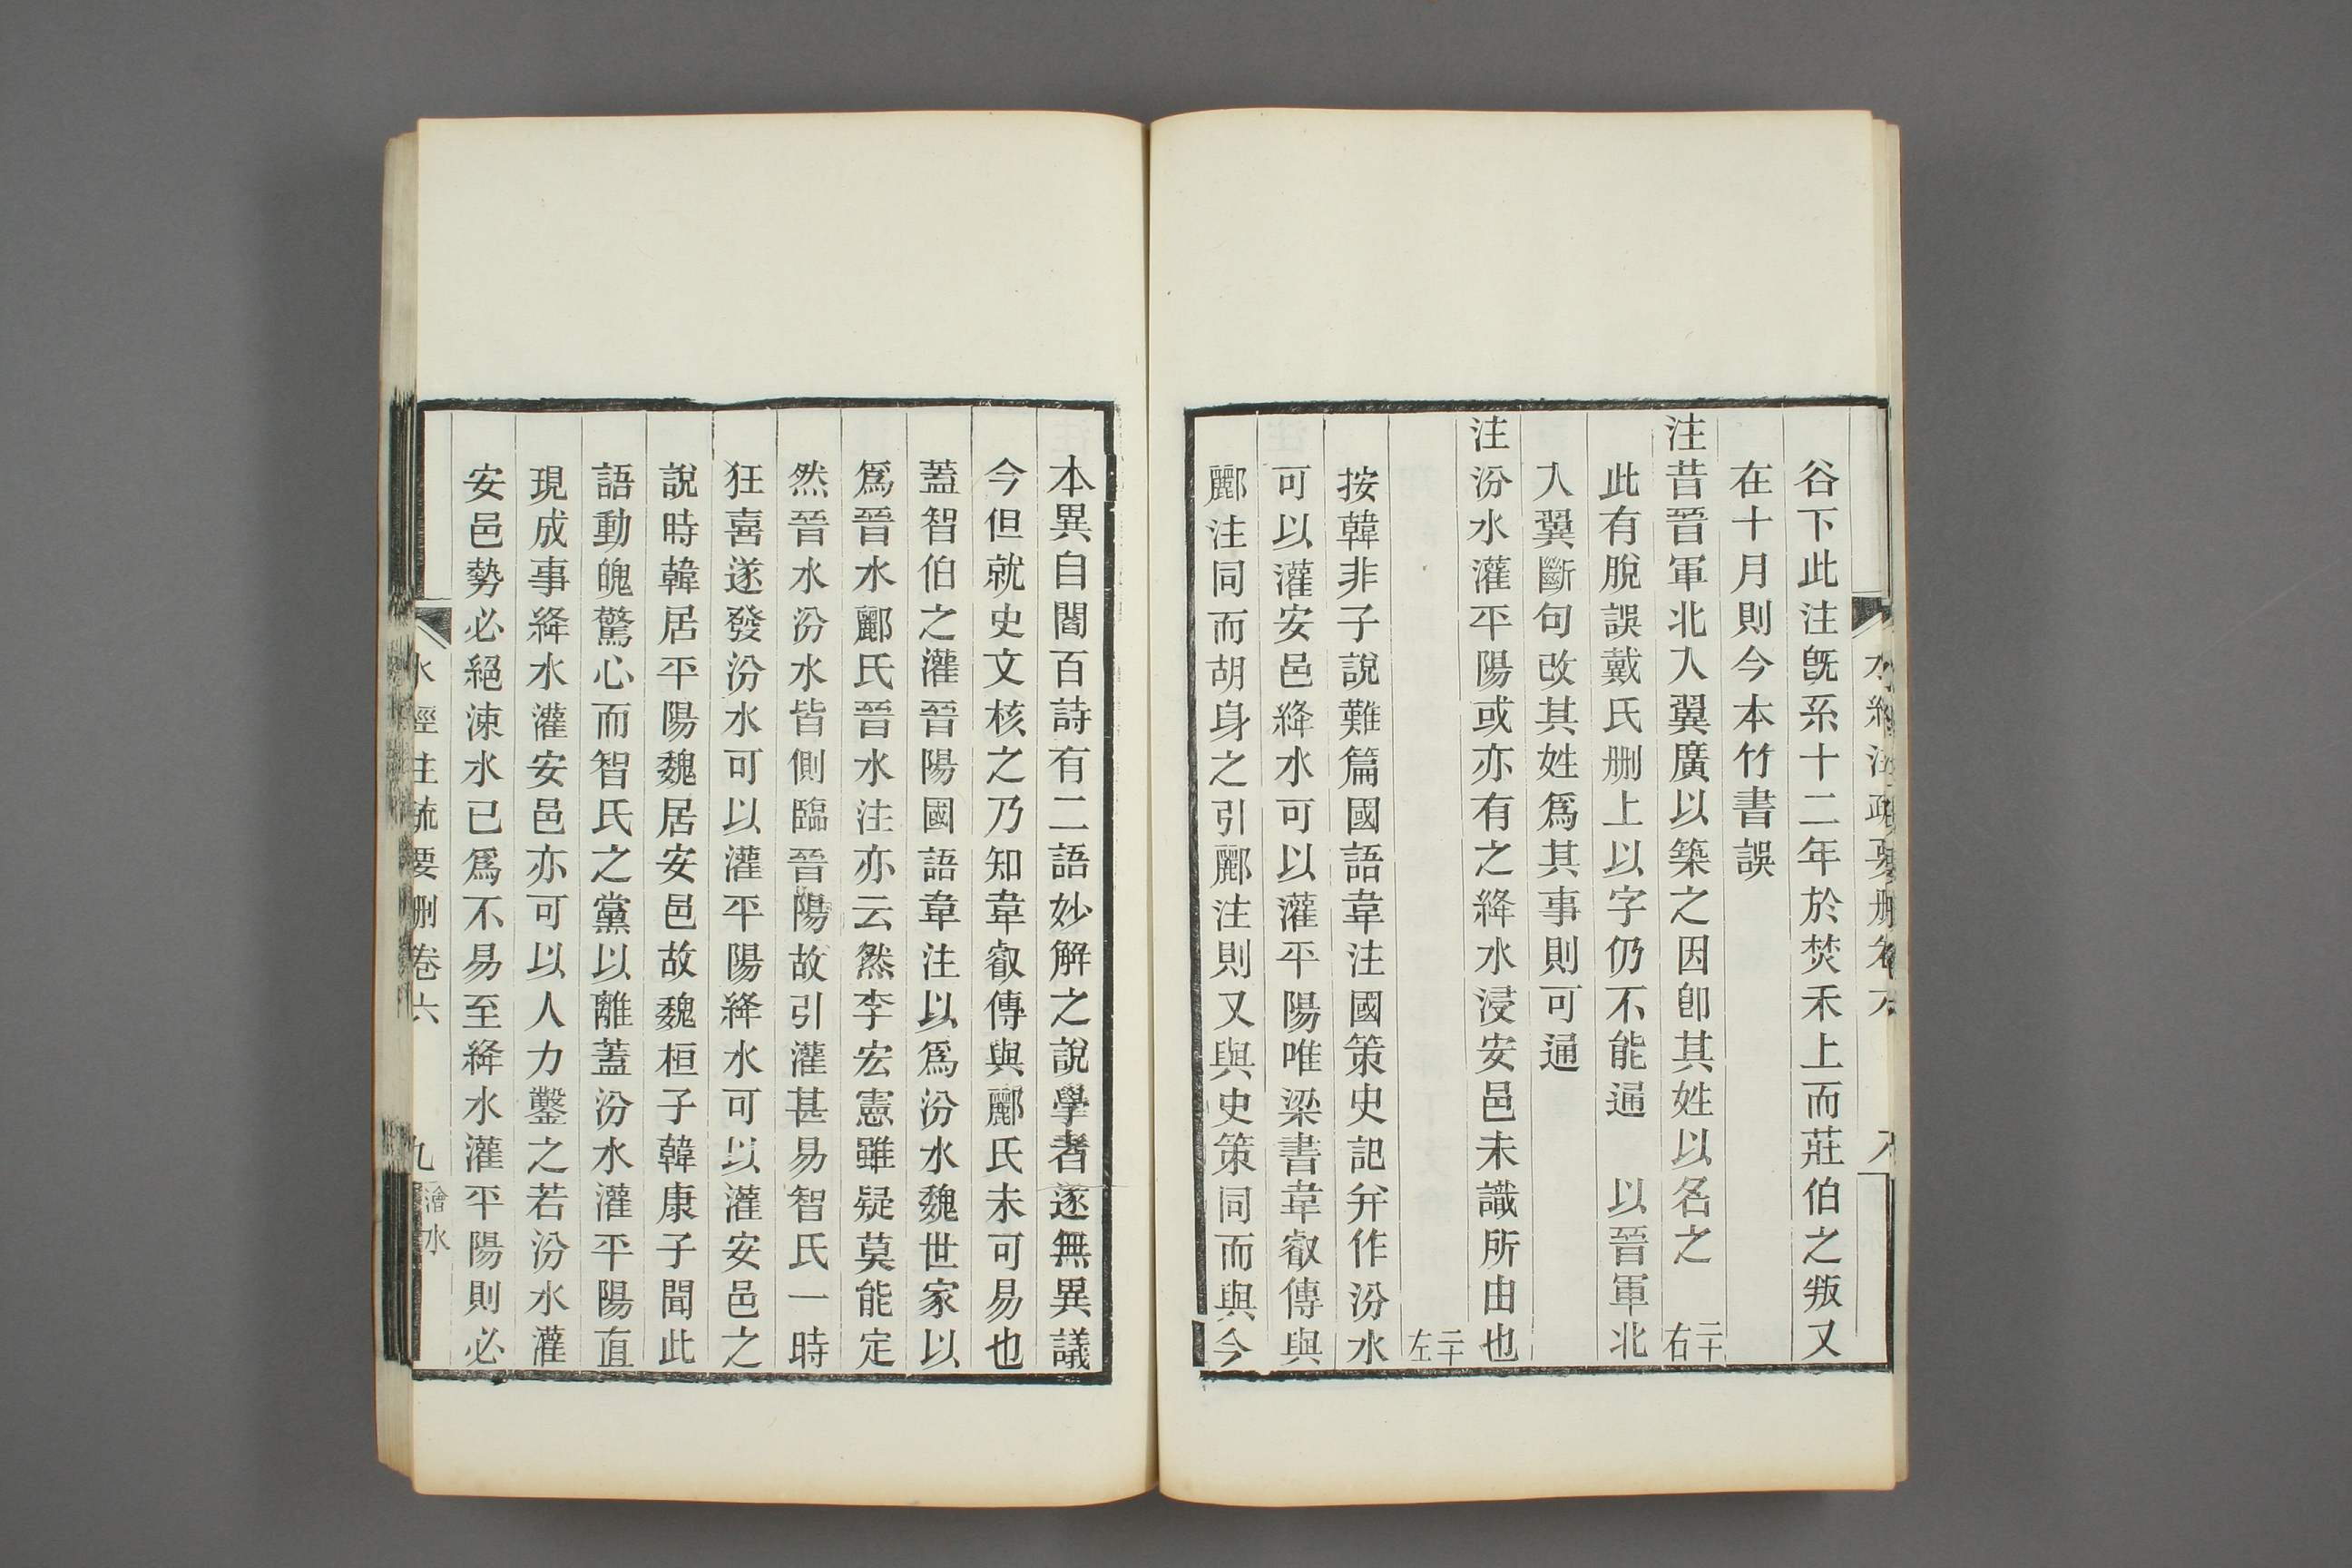 水經注疏要刪卷六 八
谷下此注旣系十二年於焚禾上而莊伯之叛又
在十月則今本竹書誤
注昔晉軍北入翼廣以築之因卽其姓以名之 二十右
此有脫誤戴氏刪上以字仍不能通 以晉軍北
入翼斷句改其姓爲其事則可通
注汾水灌平陽或亦有之絳水浸安邑未識所由也
二十左
按韓非子說難篇國語韋注國策史記幷作汾水
可以灌安邑絳水可以灌平陽唯梁書韋叡傳與
酈注同而胡身之引酈注則又與史策同而與今
本異自閻百詩有二語妙解之說學者遂無異議
今但就史文核之乃知韋叡傳與酈氏未可易也
蓋智伯之灌晉陽國語韋注以爲汾水魏世家以
爲晉水酈氏晉水注亦云然李宏憲雖疑莫能定
然晉水汾水皆側臨晉陽故引灌甚易智氏一時
狂喜遂發汾水可以灌平陽絳水可以灌安邑之
說時韓居平陽魏居安邑故魏桓子韓康子聞此
語動魄驚心而智氏之黨以離蓋汾水灌平陽直
現成事絳水灌安邑亦可以人力鑿之若汾水灌
安邑勢必絕涑水已爲不易至絳水灌平陽則必
水經注疏要刪卷六 九 澮水